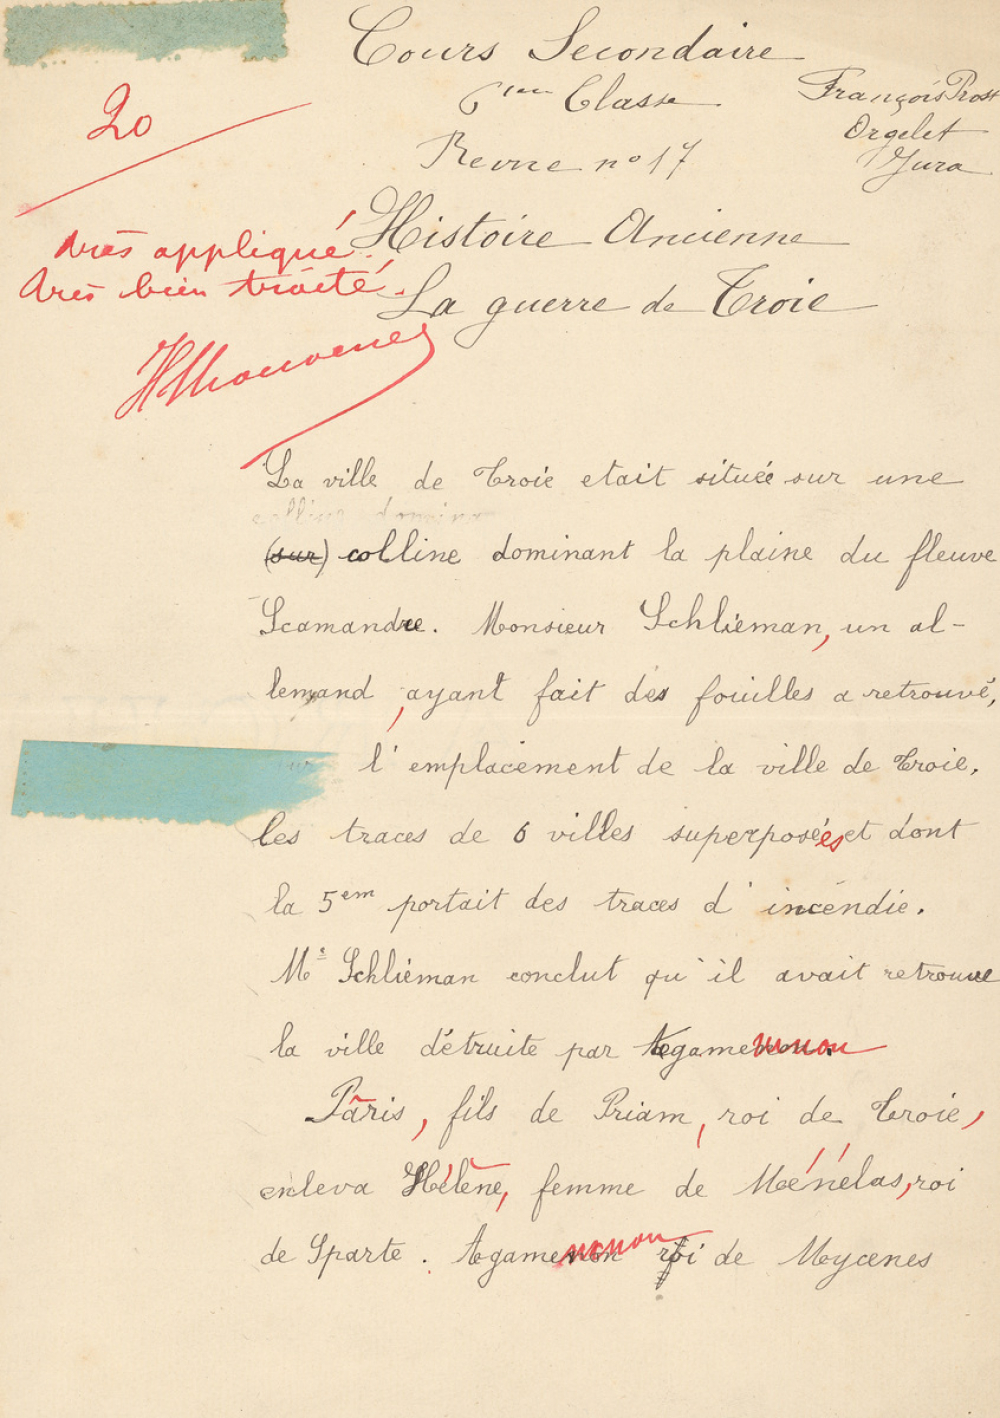 Cours Secondaire
6ième Classe
François Prost
Orgelet
Jura
Revue n° 17
20
Histoire Ancienne
La guerre de Troie
très appliqué.
très bien traité.
La ville de Troie etait située sur une
colline domin
(sur) colline dominant la plaine du fleuve
Scamandre. Monsieur Schliéman, un al-
lemand, ayant fait des fouilles a retrouvé,
l'emplacement de la ville de Troie.
les traces de 6 villes superposées et dont
la 5em portait des traces d'incendie.
Mr Schliéman conclut qu'il avait retrouve
la ville détruite par Agamemnon
Pâris, fils de Priam, roi de Troie,
enleva Hélène, femme de Ménélas, roi
de Sparte. Agamemnon roi de Mycenes